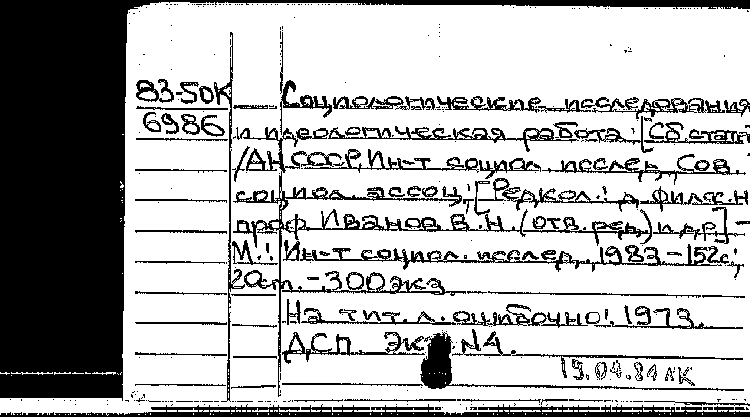 83-50К Социологические исследования
6986 и идеологическая работа: [Сб.статей
/АН СССР, Ин-т социол. исслед., Сов.
социол. ассоц.; [Редкол.: д. филос.н
проф. Иванов В.Н. (отв.ред.) и др.] -
М.: Ин-т социол. исслед., 1983 - 152с;
20см. - 300экз.
На тит. л. ошибочно: 1973.
ДСП. Экз. №4.
19.04.84 АК